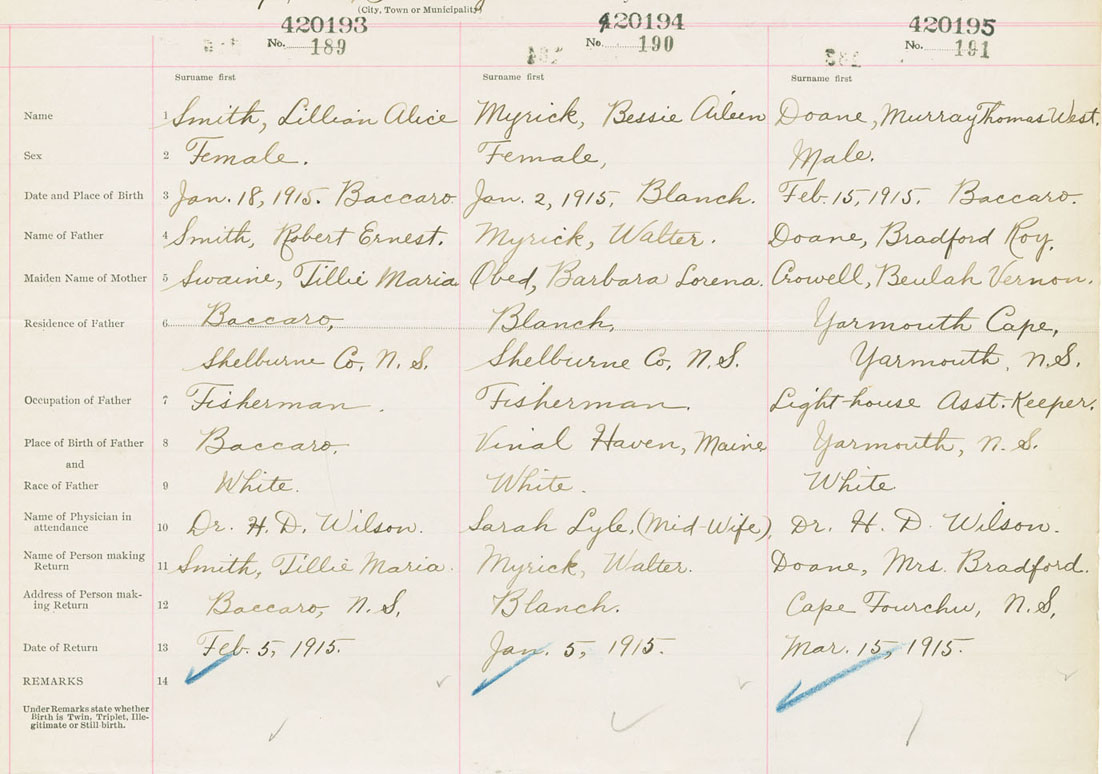 (City, Town or Municipality)
420193 420194 420195
No. 189 No. 190 No. 191
Surname first Surname first Surname first
Name 1 Smith, Lillian Alice Myrick, Bessie Aileen Doane, Murray Thomas West.
Sex 2 Female. Female, Male.
Date and Place of Birth 3 Jan. 18, 1915. Baccaro. Jan. 2, 1915, Blanch. Feb. 15, 1915. Baccaro.
Name of Father 4 Smith, Robert Ernest. Myrick, Walter. Doane, Bradford Roy.
Maiden Name of Mother 5 Swaine, Tillie Maria Obed, Barbara Lorena. Crowell, Beulah Vernon.
Residence of Father 6 Baccaro, Blanch, Yarmouth Cape,
Shelburne Co, N. S. Shelburne Co, N.S. Yarmouth, N.S.
Occupation of Father 7 Fisherman. Fisherman. Light-house Asst. Keeper.
Place of Birth of Father 8 Baccaro. Vinal Haven, Maine Yarmouth, N. S.
and
Race of Father 9 White. White. White
Name of Physician in
attendance 10 Dr. H. D. Wilson. Sarah Lyle, (Mid-Wife), Dr. H. D. Wilson.
Name of Person making
Return 11 Smith, Tillie Maria. Myrick, Walter. Doane, Mrs. Bradford.
Address of Person mak-
ing Return 12 Baccaro, N. S, Blanch. Cape Fourchu, N.S,
Date of Return 13 Feb. 5, 1915. Jan. 5, 1915. Mar. 15, 1915.
REMARKS 14
Under Remarks state whether
Birth is Twin, Triplet, Ille-
gitimate or Still-birth.